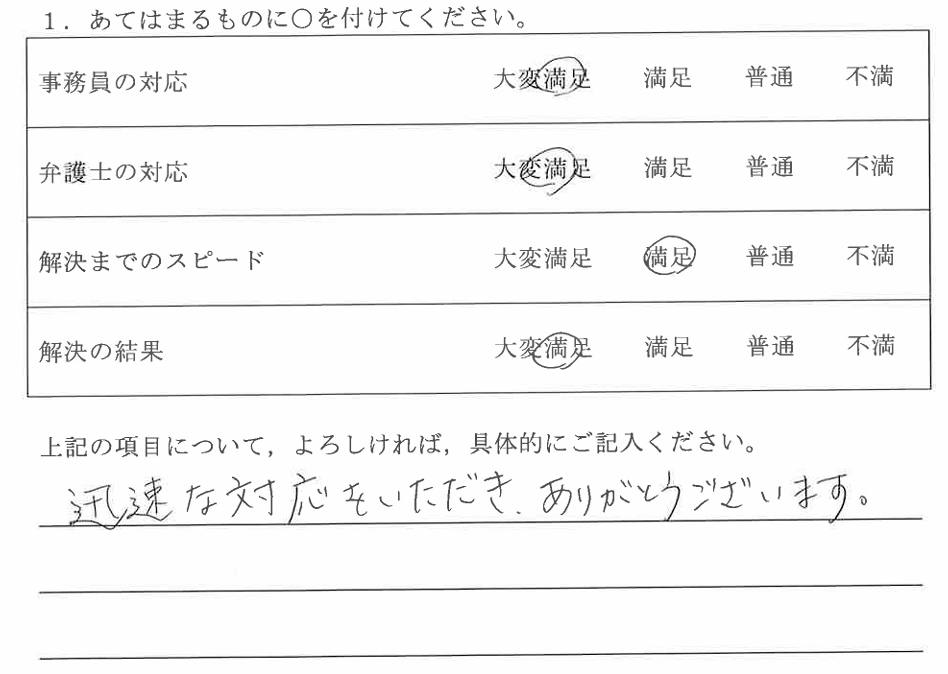 1．あてはまるものに〇を付けてください。
事務員の対応 大変満足 満足 普通 不満
弁護士の対応 大変満足 満足 普通 不満
解決までのスピード 大変満足 満足 普通 不満
解決の結果 大変満足 満足 普通 不満
上記の項目について，よろしければ，具体的にご記入ください。
迅速な対応をいただき、ありがとうございます。